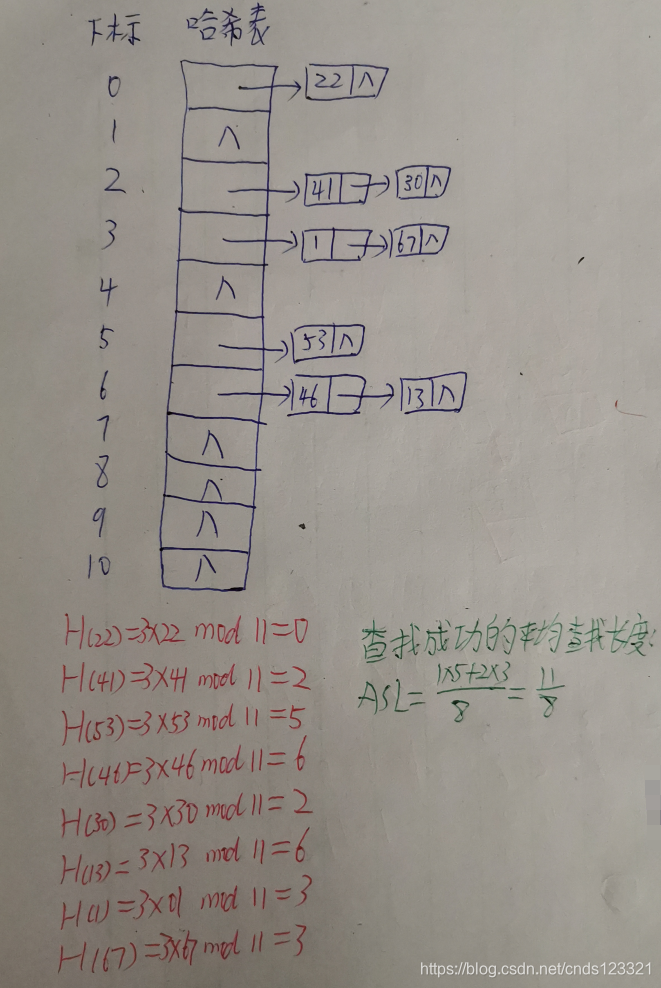 下标 哈希表
0 22 ∧
1 ∧
2 41 30 ∧
3 1 67 ∧
4 ∧
5 53 ∧
6 46 13 ∧
7 ∧
8 ∧
9 ∧
10 ∧
H(22)=3×22 mod 11=0
H(41)=3×41 mod 11=2
H(53)=3×53 mod 11=5
H(46)=3×46 mod 11=6
H(30)=3×30 mod 11=2
H(13)=3×13 mod 11=6
H(1)=3×01 mod 11=3
H(67)=3×67 mod 11=3
查找成功的平均查找长度:
ASL=(1×5+2×3)/8=11/8
https://blog.csdn.net/cnds123321